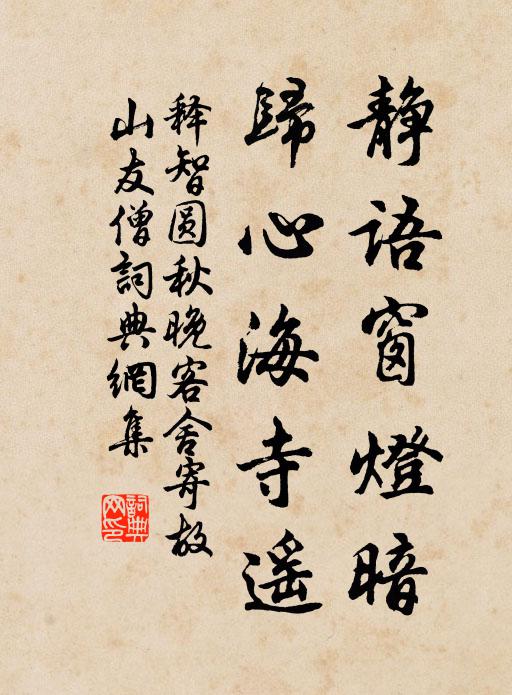 靜語窗燈暗
歸心海寺遥
释智圆秋晚客舍寄故
山友僧詞典網集
詞典
网印